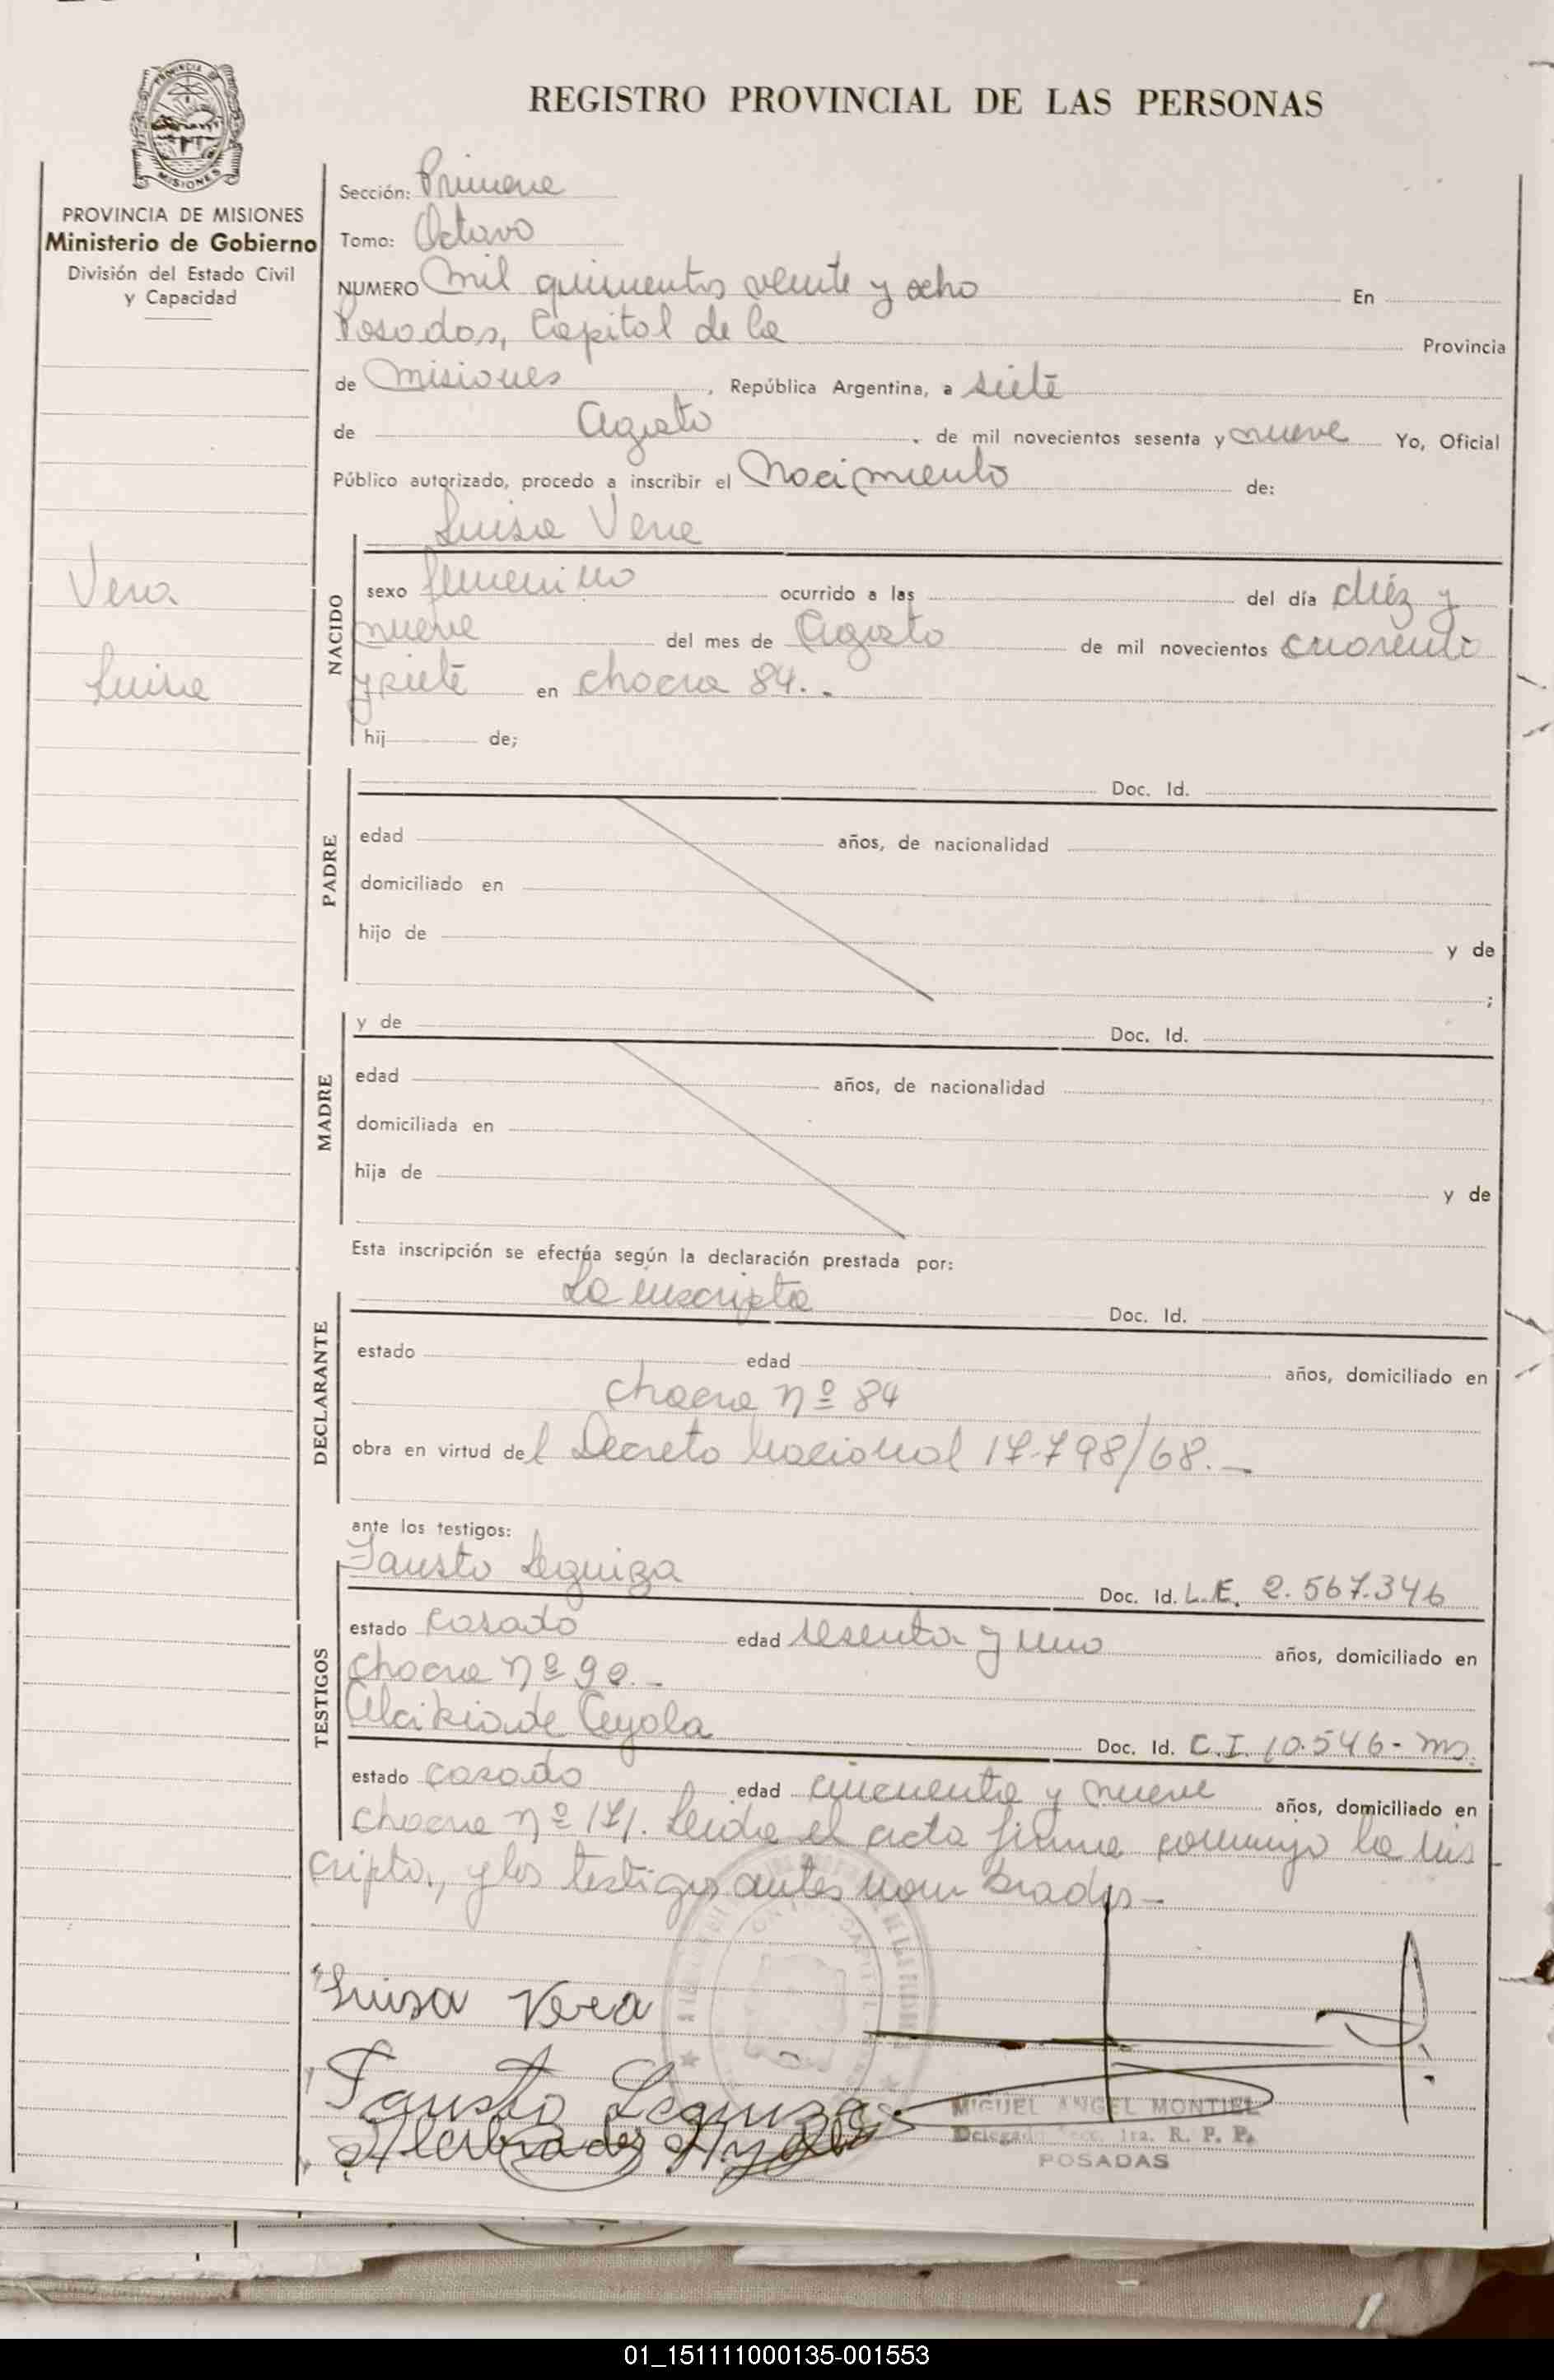 REGISTRO PROVINCIAL DE LAS PERSONAS
PROVINCIA DE
MISIONES
PROVINCIA DE MISIONES
Ministerio de Gobierno
División del Estado Civil
y Capacidad
Vera
Luisa
Sección: Primera
Tomo: Octavo
NUMERO Mil quinientos veinte y ocho En
Posadas, Capital de la Provincia
de Misiones, República Argentina, a siete
de Agosto de mil novecientos sesenta y nueve Yo, Oficial
Público autorizado, procedo a inscribir el Nacimiento de:
Luisa Vera
NACIDO
sexo femenino ocurrido a las del día diéz y
nueve del mes de Agosto de mil novecientos cuarenta
y siete en chacra 84.-
hij de;
PADRE
Doc. Id.
edad años, de nacionalidad
domiciliado en
hijo de y de
;
MADRE
y de Doc. Id.
edad años, de nacionalidad
domiciliada en
hija de y de
Esta inscripción se efectúa según la declaración prestada por:
DECLARANTE
La inscripta Doc. Id.
estado edad años, domiciliado en
chacra nº 84
obra en virtud del Decreto Nacional 17.798/68.-
ante los testigos:
TESTIGOS
Fausto Leguiza Doc. Id. L.E. 2.567.346
estado casado edad sesenta y uno años, domiciliado en
chacra nº 90.-
Alcibiade Ayola Doc. Id. C.I. 10.546- Ms.
estado casado edad cincuenta y nueve años, domiciliado en
chacra nº 171. Leida el acta firma conmigo la ins
cripta, y los testigos antes nombrados-
Luisa Vera
Fausto Leguiza
Alcibiades Ayola
MIGUEL ANGEL MONTIEL
Delegado Secc. 1ra. R. P. P.
POSADAS
01_151111000135-001553